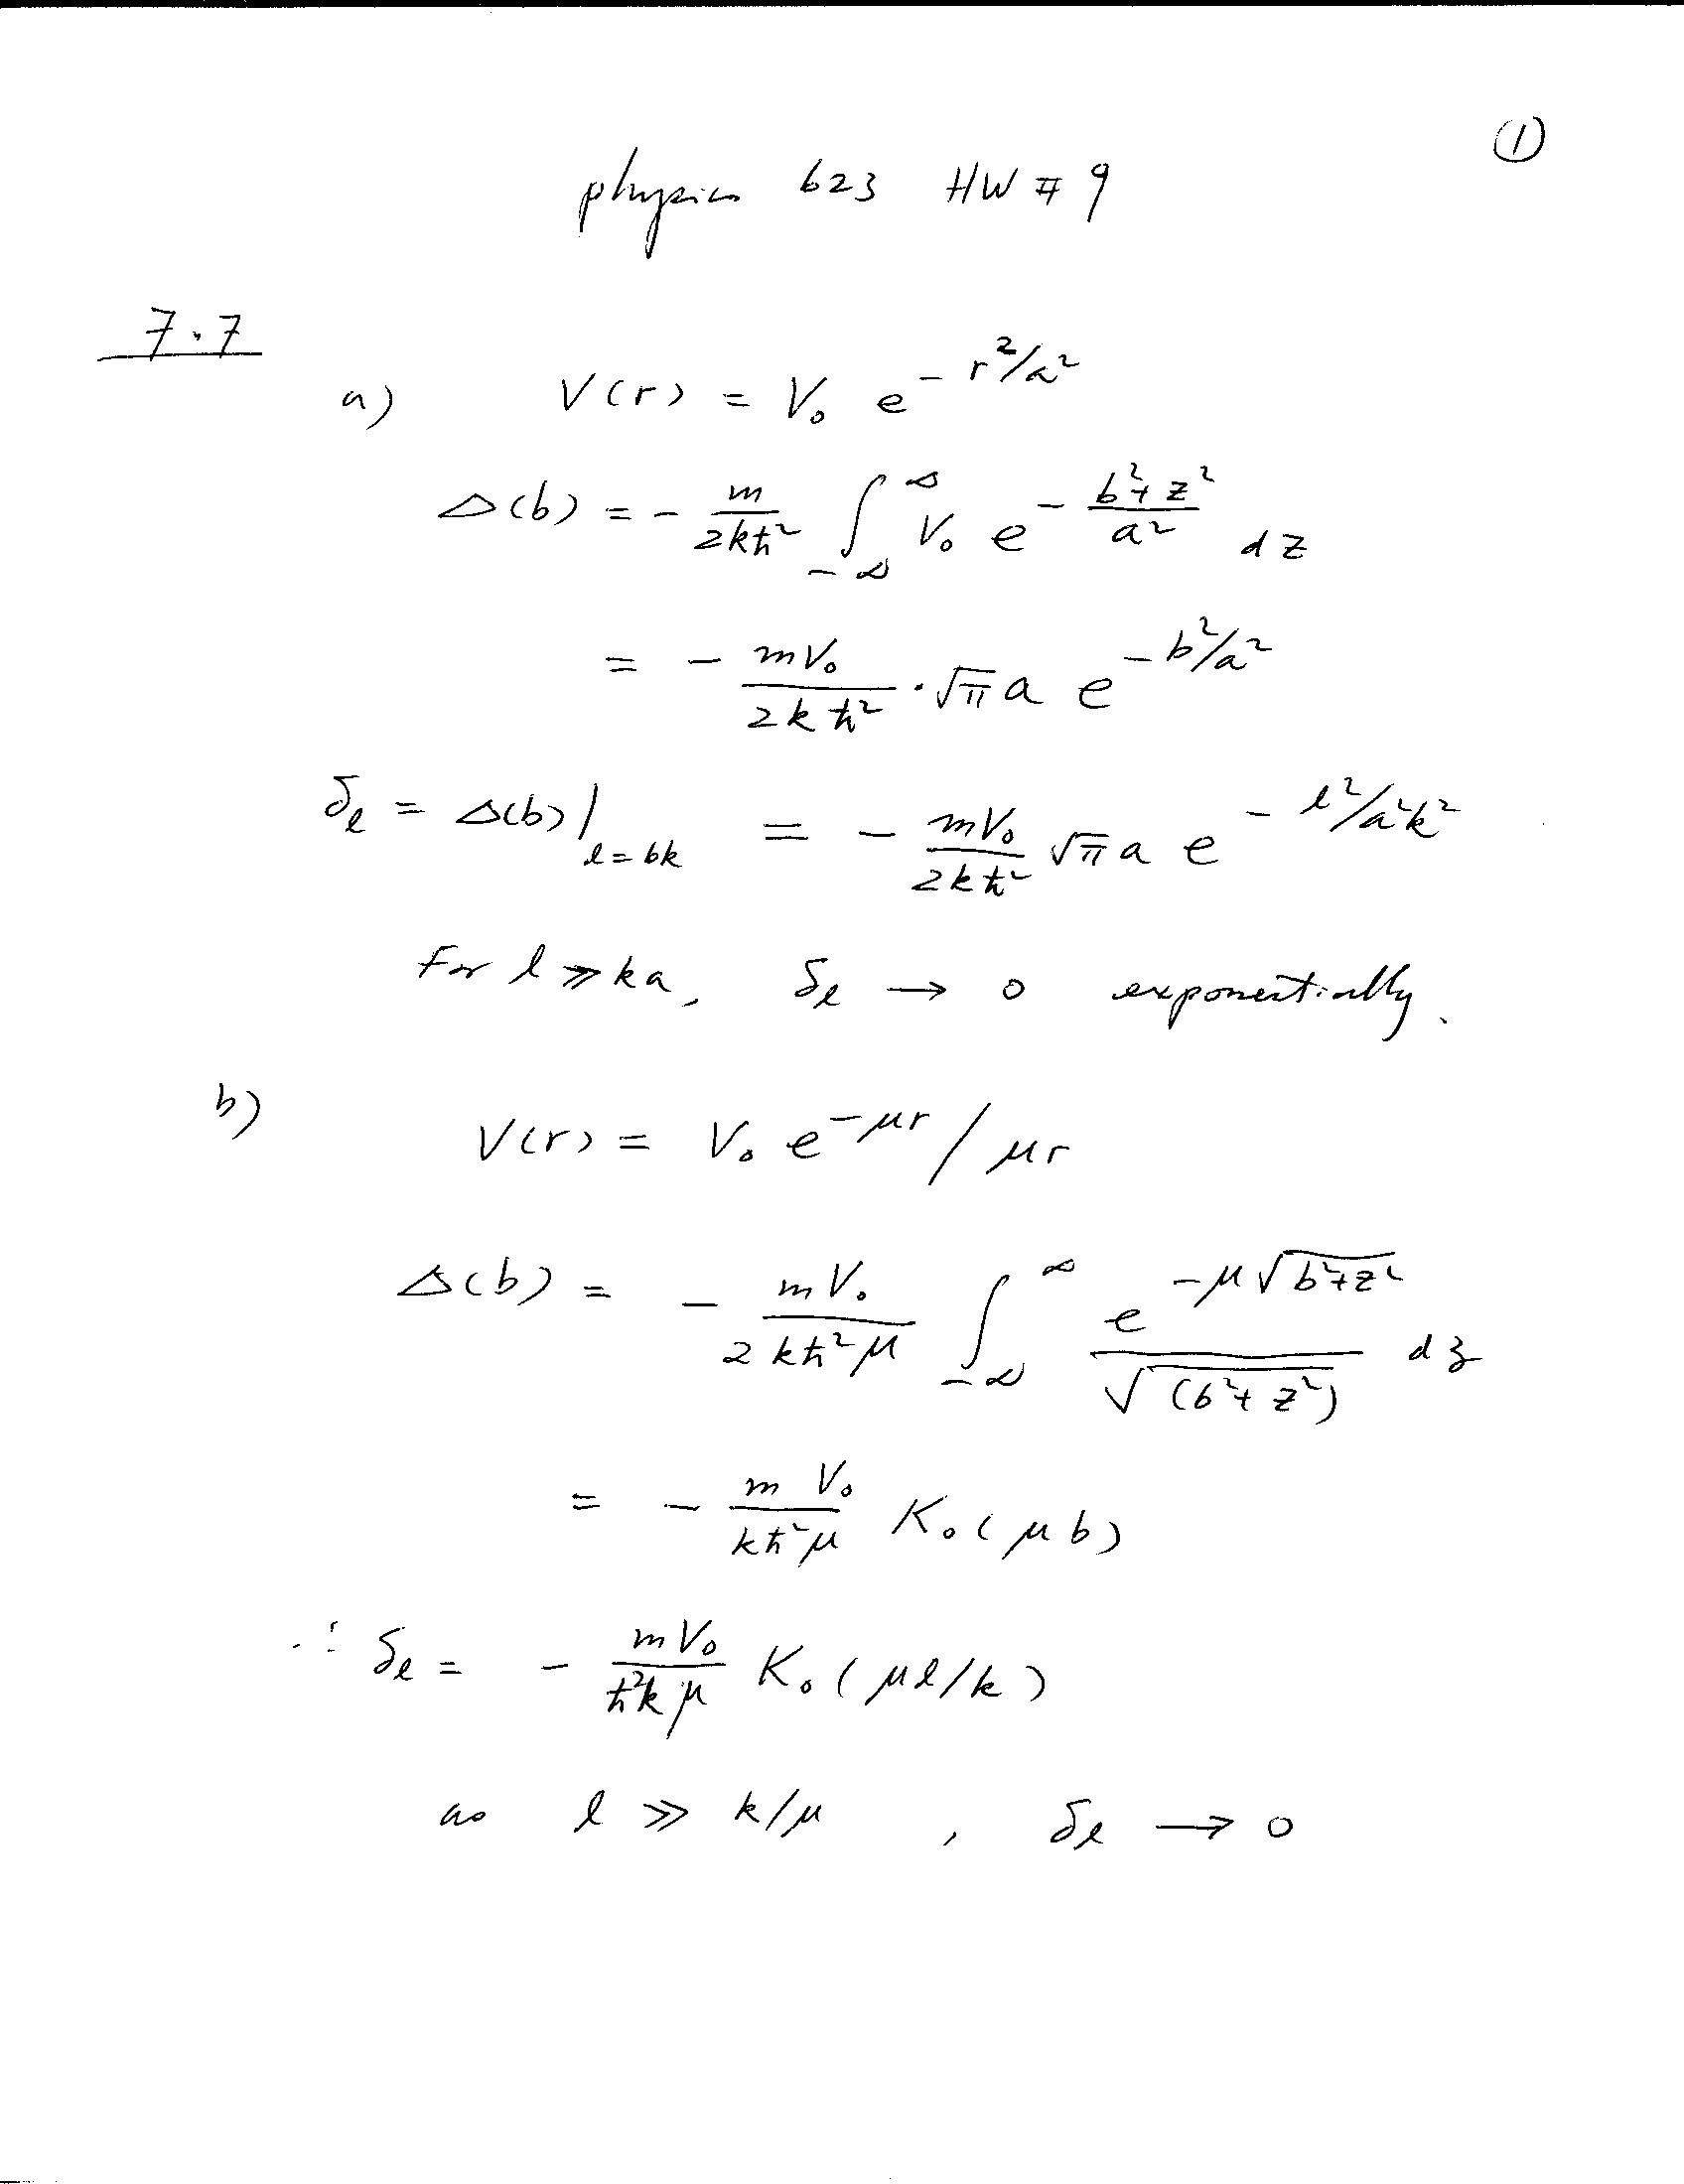 ①
physics 623 HW # 9
7.7
a) V(r) = V₀ e^{-r²/a²}
Δ(b) = - \frac{m}{2kħ²} ∫_{-∞}^{∞} V₀ e^{-\frac{b²+z²}{a²}} dz
= - \frac{mV₀}{2kħ²} · √π a e^{-b²/a²}
δ_ℓ = Δ(b)|_{ℓ=bk} = - \frac{mV₀}{2kħ²} √π a e^{-ℓ²/a²k²}
For ℓ ≫ ka, δ_ℓ → 0 exponentially.
b) V(r) = V₀ e^{-μr} / μr
Δ(b) = - \frac{mV₀}{2kħ²μ} ∫_{-∞}^{∞} \frac{e^{-μ√(b²+z²)}}{√(b²+z²)} dz
= - \frac{mV₀}{kħ²μ} K₀(μb)
∴ δ_ℓ = - \frac{mV₀}{ħ²kμ} K₀(μℓ/k)
as ℓ ≫ k/μ , δ_ℓ → 0